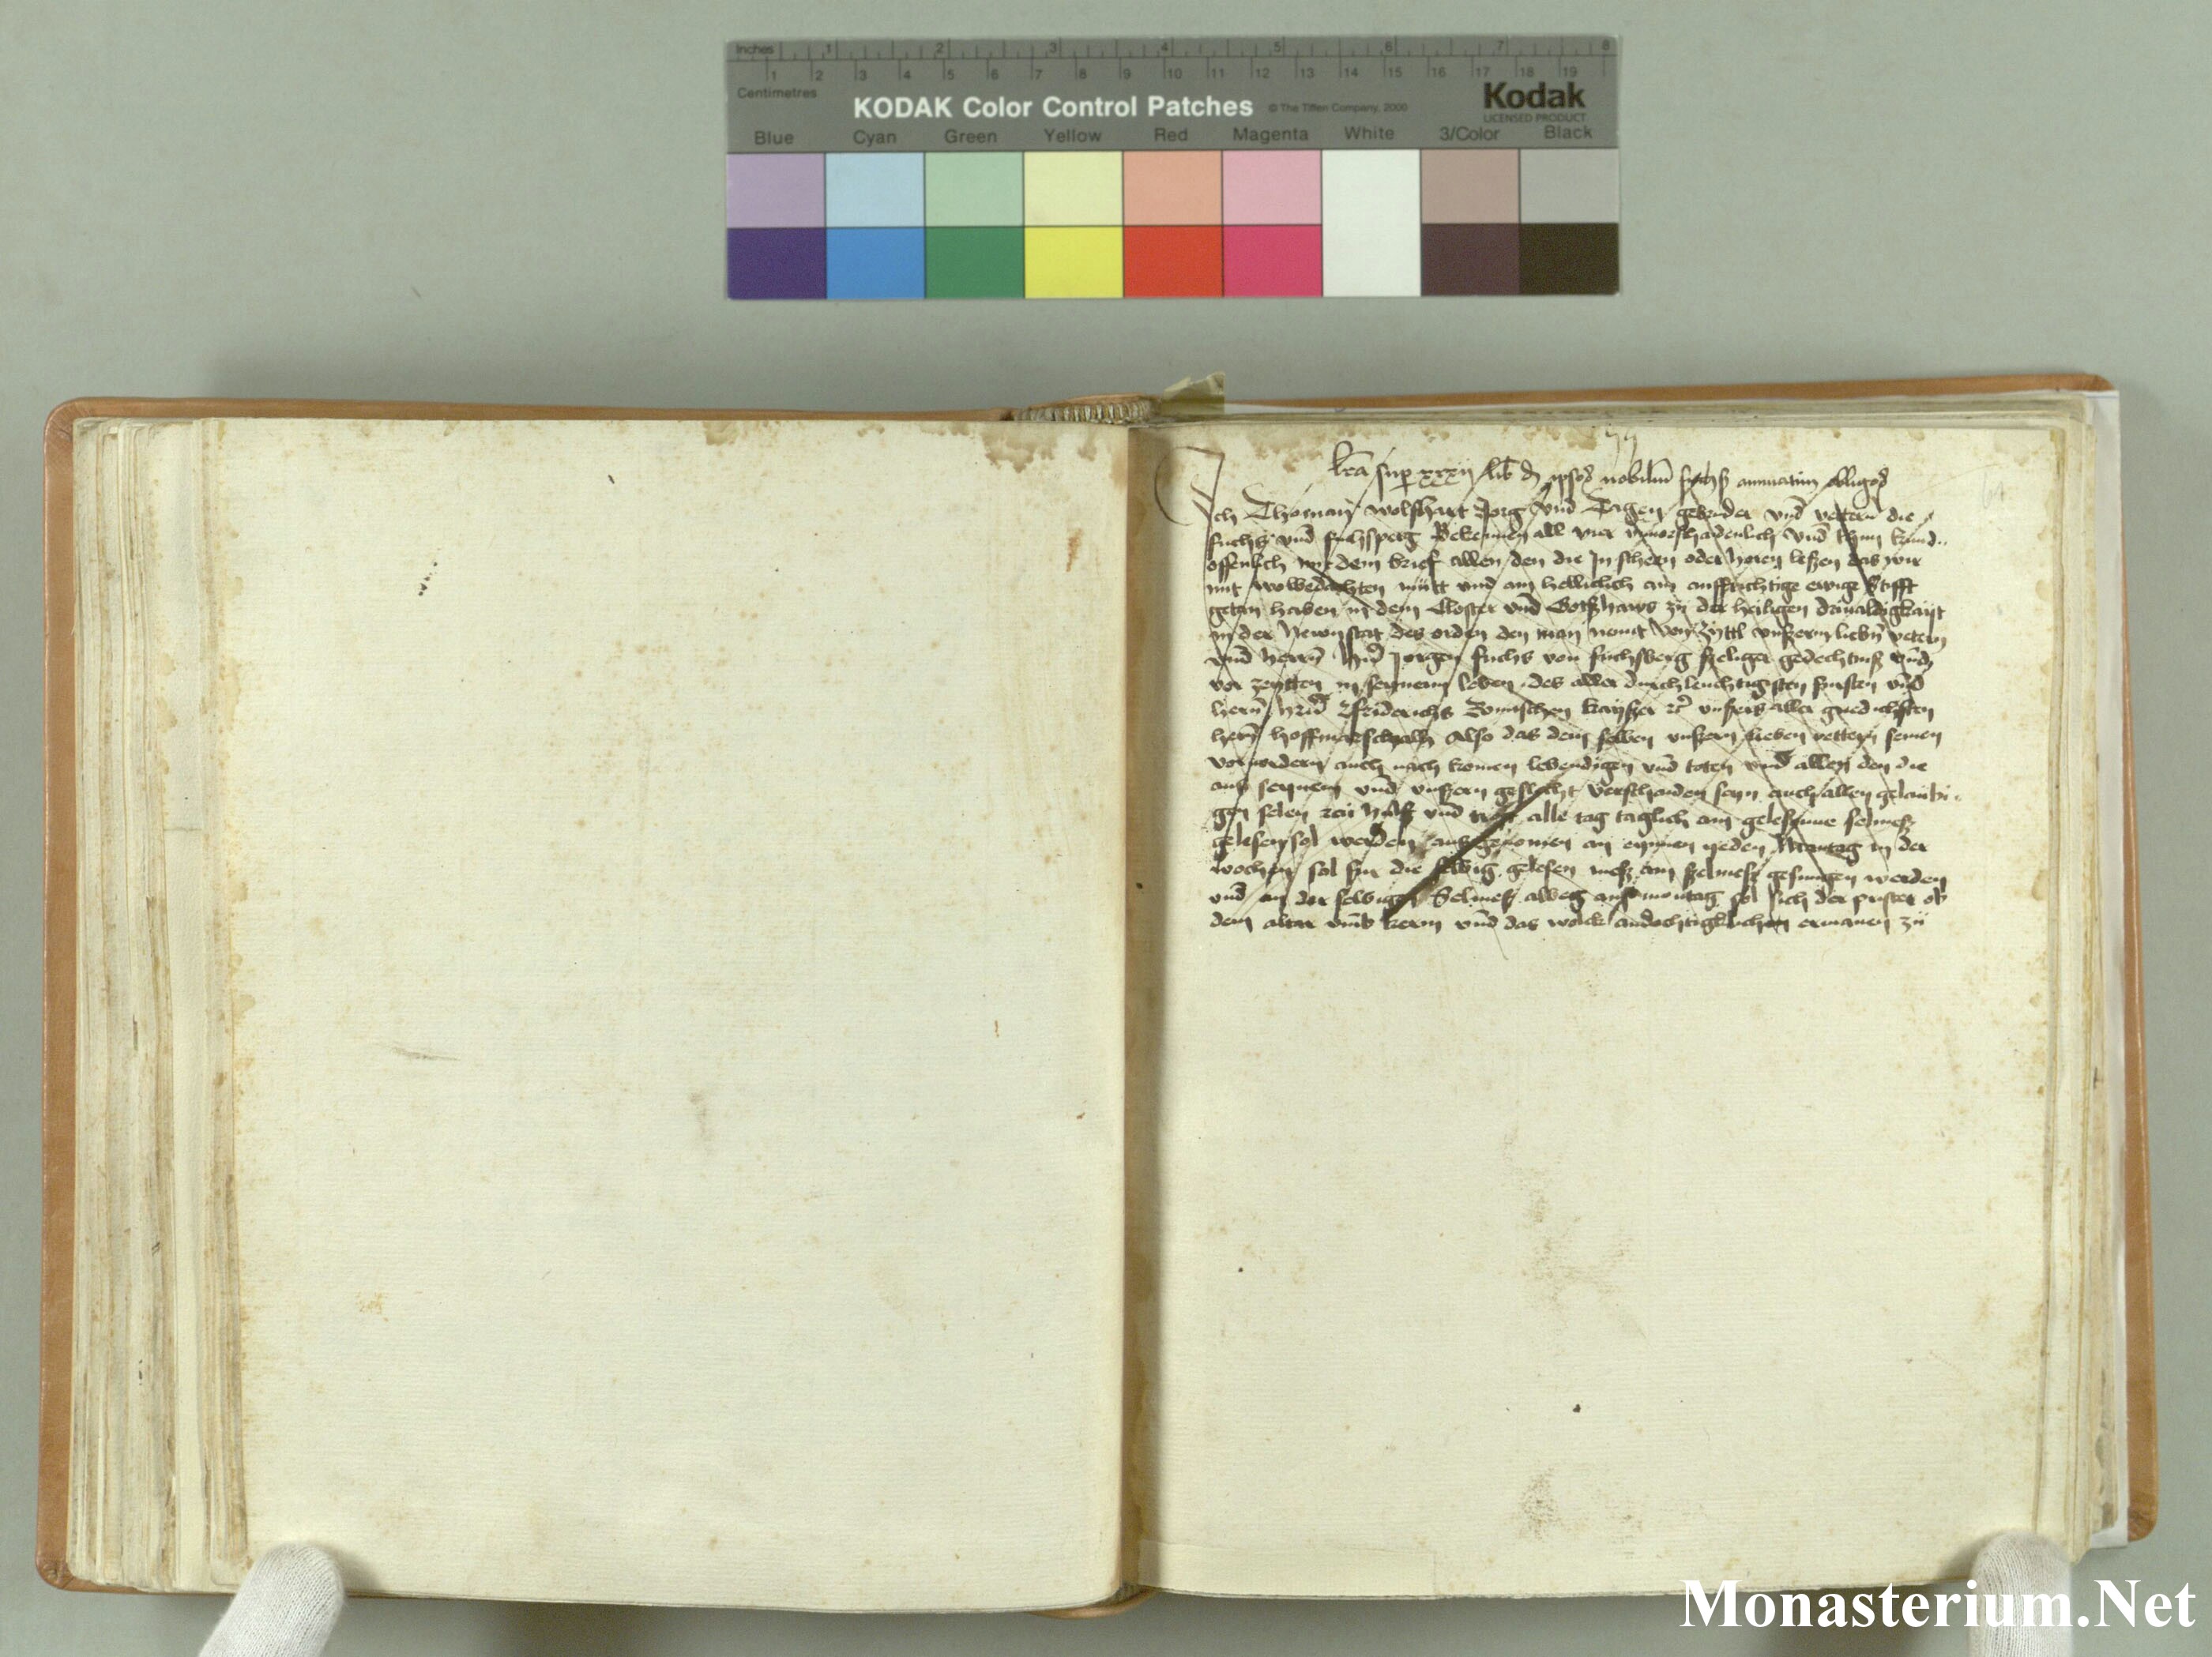 Inches 1 2 3 4 5 6 7 8
1 2 3 4 5 6 7 8 9 10 11 12 13 14 15 16 17 18 19
Centimetres
KODAK Color Control Patches © The Tiffen Company, 2000 Kodak
LICENSED PRODUCT
Blue Cyan Green Yellow Red Magenta White 3/Color Black
lrã sup xxxij lib nobiliũ annuatim
Ich Thoman wolfhart Jorg vnd Degen gebruder vnd vettern die
fuchs vnd fuchsperg Bekennen all vier vnd thun kund
offenlich mit dem brief allen den die In sehen oder horen leszen das wir
mit wolbedachten mutt vnd ain auffrichtige ewige Stifft
getan haben in dem Closter vnd Gotzhaws zu der heiligen driualdigkayt
in der Newnstat des orden den man nennt von Zyttl vnszerm liebñ vetern
vnd herrñ Jorgen fuchs von fuchsberg szeliger gedechtnusz
vor zeytten in seynem leben des aller durchleuchtigsten fursten vnd
herrñ Fridrichs Romischen kayszer vnszers aller gnedichsten
herrñ hoffmarschalh Also das dem selben vnszern lieben vettern seinen
voruordern auch nach komen lebendigen vnd toten vnd allen den die
aus seynem vnd vnszern geslecht verschaiden seyn auch allen gelaubi
gen selen zcu hilff vnd trost alle tag taglich ain geleszne selmesz
gelesen sol werden ausgenomen an eynnen yeden Montag in der
wochen sol fur die selbig gelesen mesz ain szelmesz gesungen werden
vnd an der selbigen Selmesz albeg ausz montag sol sich der prister ob
dem altar vmb kern vnd das wolck andochtigklichen ermanen zu
Monasterium.Net